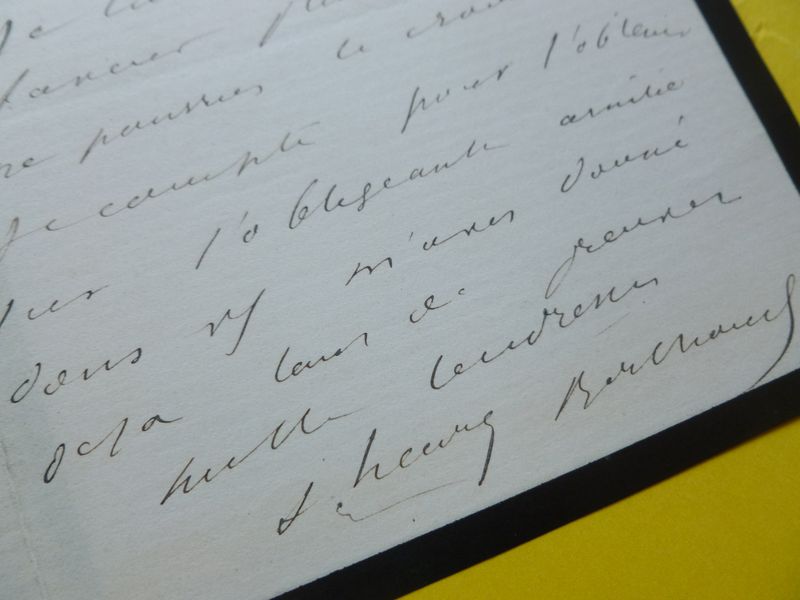 ne pourriez le
je compte pour l'obtenir
sur l'obligeante amitié
dont vs m'avez donné
déjà tant de preuves
mille tendresses
S. henry Berthoud